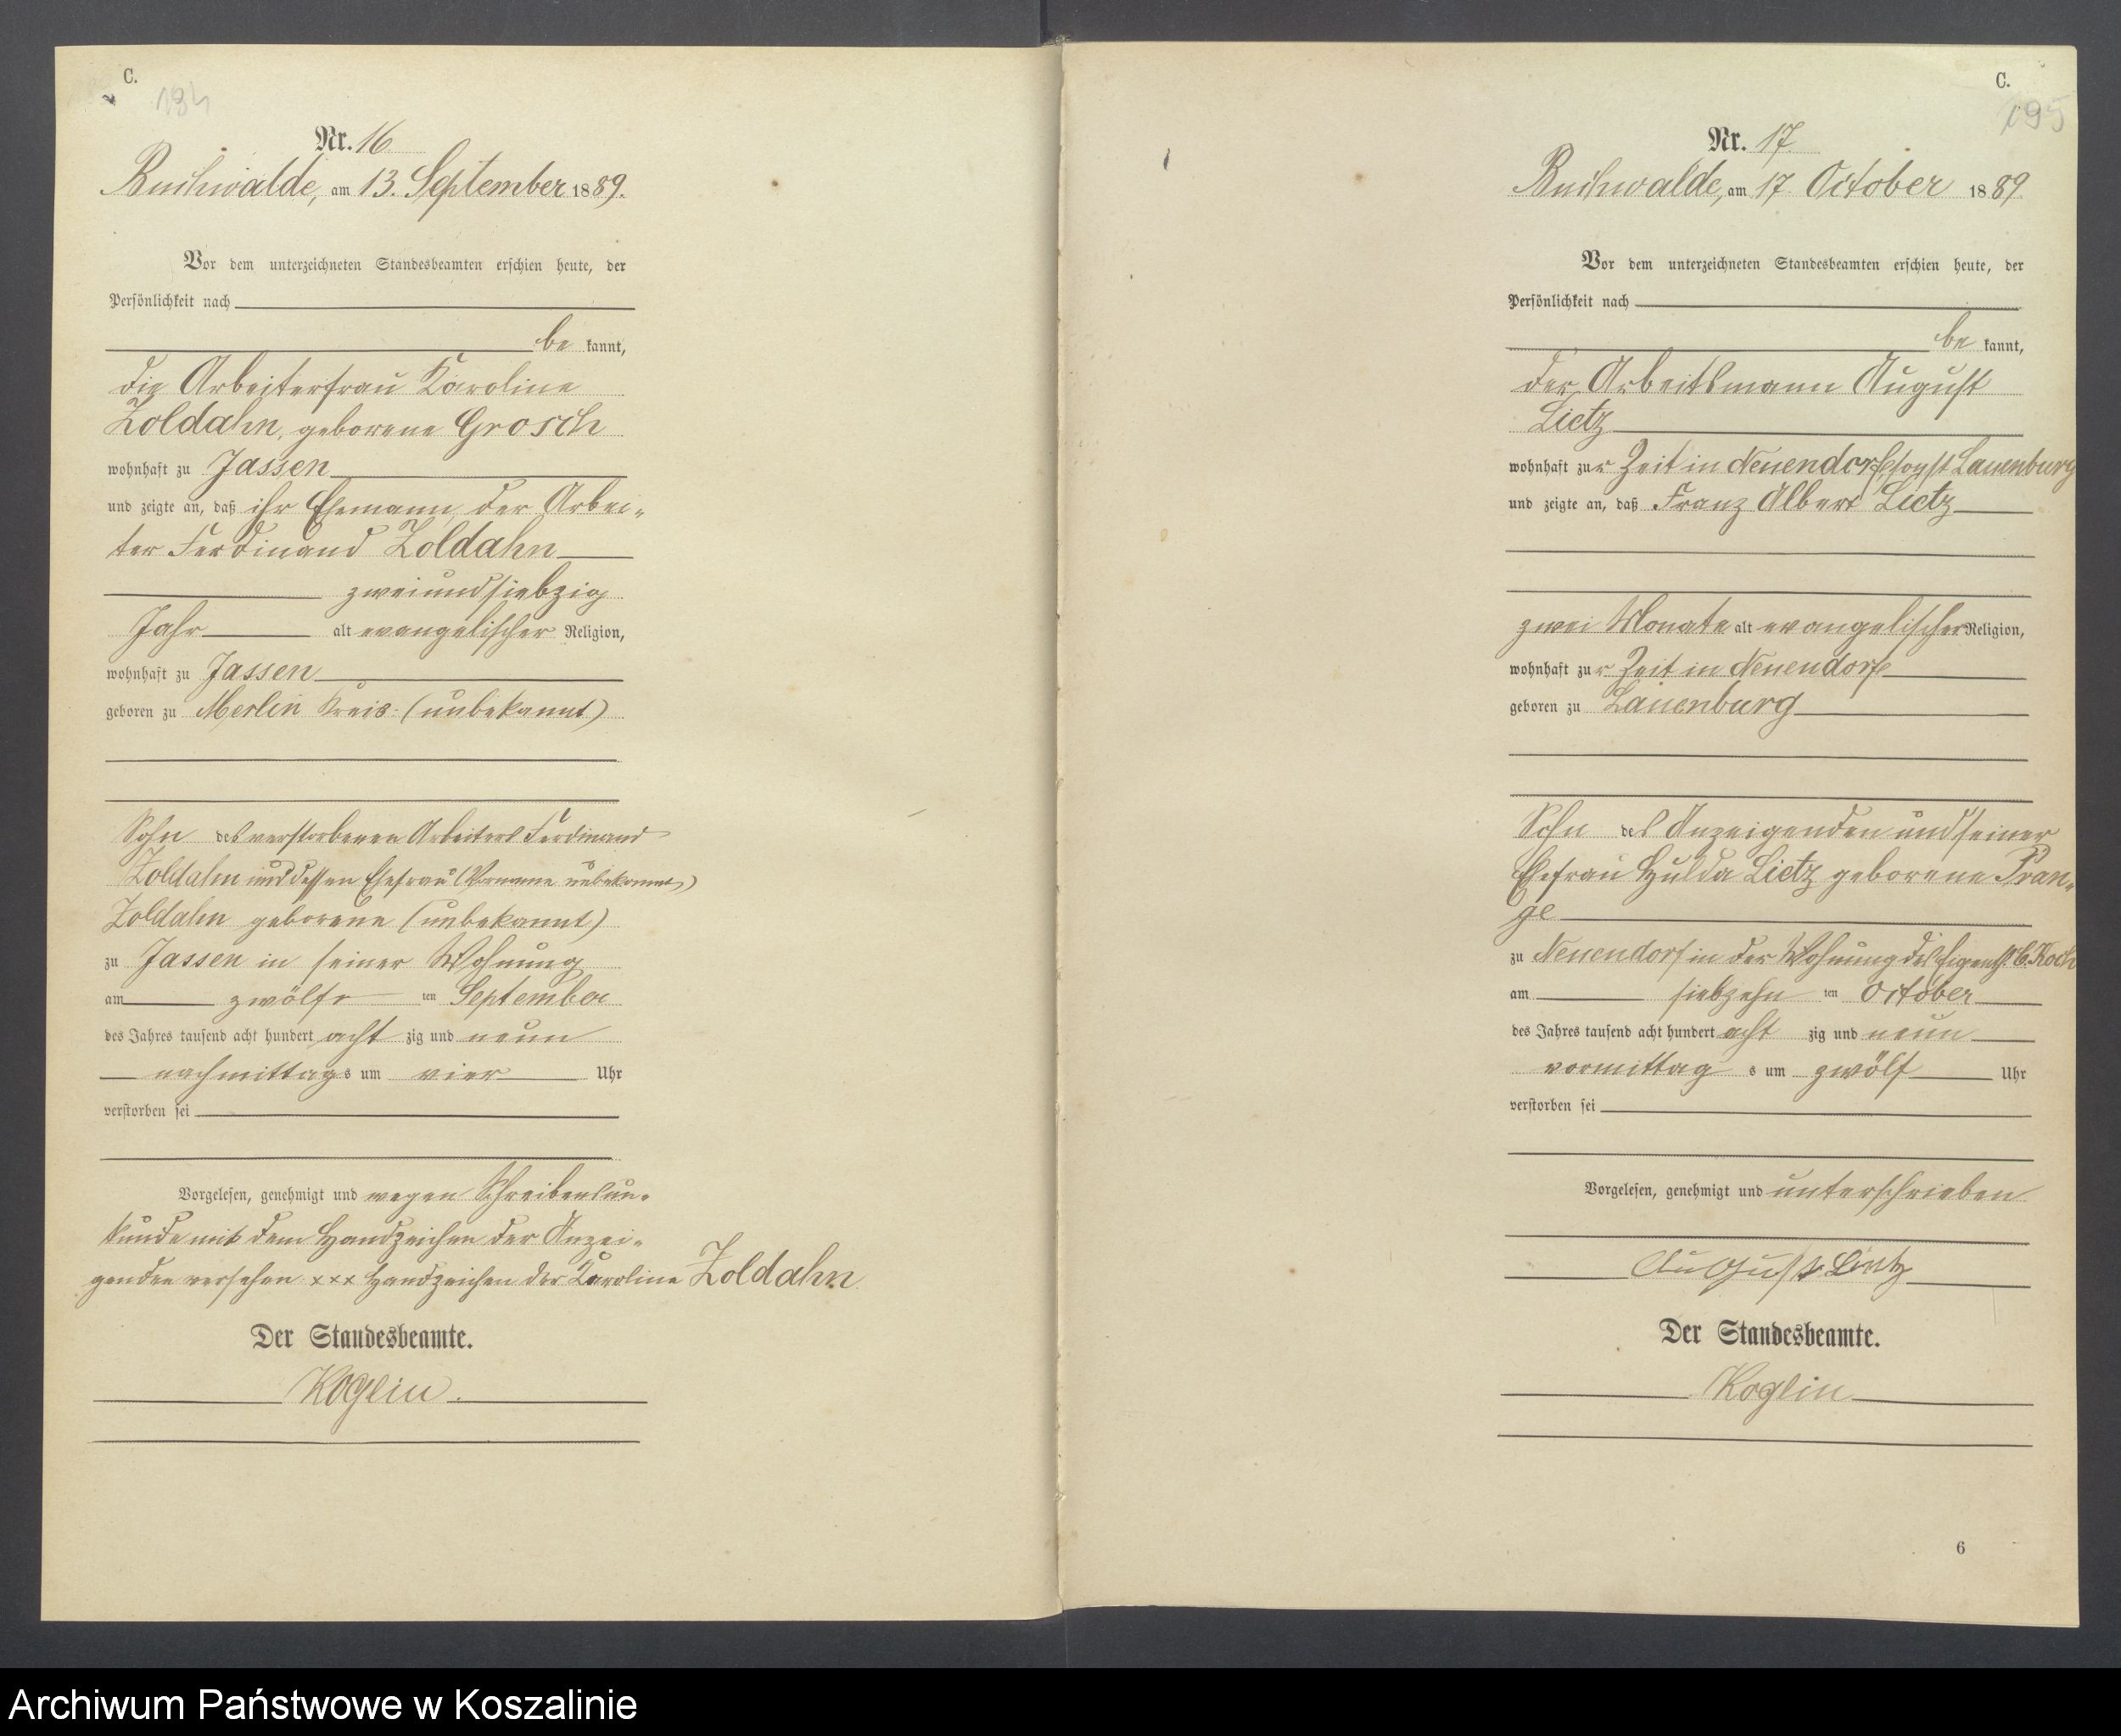 C.
194
Nr. 16
Buchwalde, am 13. September 1889.
Vor dem unterzeichneten Standesbeamten erschien heute, der
Persönlichkeit nach
be kannt,
die Arbeiterfrau Karoline
Zoldahn, geborene Grosch
wohnhaft zu Jassen
und zeigte an, daß ihr Ehemann, der Arbei-
ter Ferdinand Zoldahn
zweiundsiebzig
Jahr alt evangelischer Religion,
wohnhaft zu Jassen
geboren zu Merlin Kreis (unbekannt)
Sohn des verstorbenen Arbeiters Ferdinand
Zoldahn und dessen Ehefrau (Vorname unbekannt)
Zoldahn geborene (unbekannt)
zu Jassen in seiner Wohnung
am zwölf ten September
des Jahres tausend acht hundert acht zig und neun
nachmittags um vier Uhr
verstorben sei
Vorgelesen, genehmigt und wegen Schreibensun-
kunde mit dem Handzeichen der Anzei-
genden versehen xxx Handzeichen der Karoline Zoldahn
Der Standesbeamte.
Koglin.
C.
195
Nr. 17
Buchwalde, am 17 October 1889
Vor dem unterzeichneten Standesbeamten erschien heute, der
Persönlichkeit nach
be kannt,
der Arbeitsmann August
Lietz
wohnhaft zur Zeit in Neuendorf sonst Lauenburg
und zeigte an, daß Franz Albert Lietz
zwei Monate alt evangelischer Religion,
wohnhaft zur Zeit in Neuendorf
geboren zu Lauenburg
Sohn des Anzeigenden und seiner
Ehefrau Hulda Lietz geborene Pran-
ge
zu Neuendorf in der Wohnung des Eigenth. C. Koch
am siebzehn ten October
des Jahres tausend acht hundert acht zig und neun
vormittag s um zwölf Uhr
verstorben sei
Vorgelesen, genehmigt und unterschrieben
August Lietz
Der Standesbeamte.
Koglin
6
Archiwum Państwowe w Koszalinie